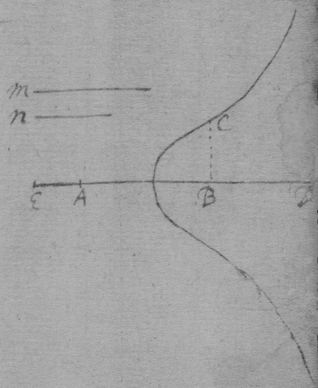 m
n
C
E A B D